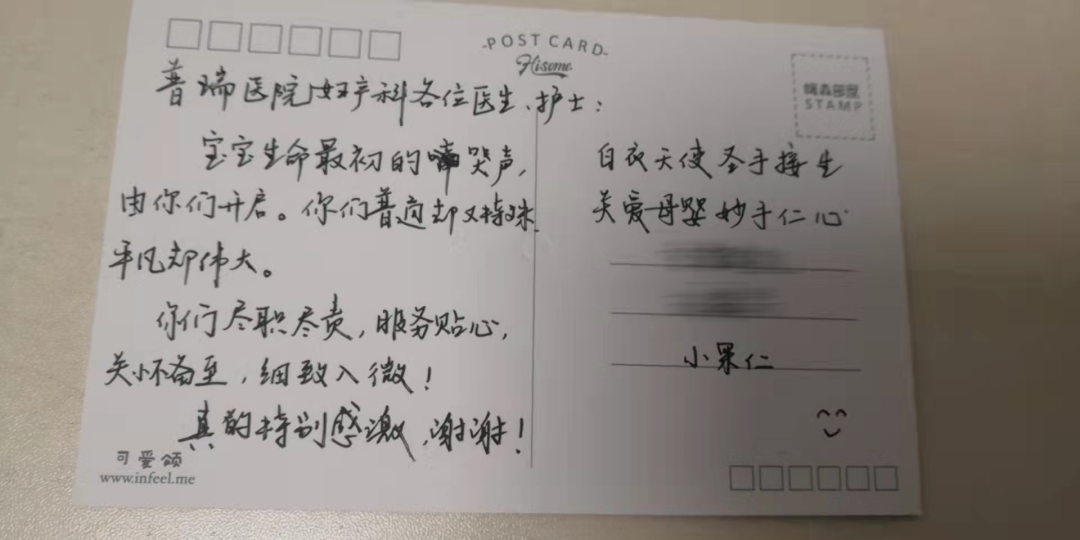 POST CARD
Hisome
嗨森部屋
STAMP
普瑞医院妇产科各位医生、护士：
宝宝生命最初的啼哭声，
由你们开启。你们普通却又特殊
平凡却伟大。
你们尽职尽责，服务贴心，
关怀备至，细致入微！
真的特别感激，谢谢！
可爱颂
www.infeel.me
白衣天使圣手接生
关爱母婴妙手仁心
小果仁